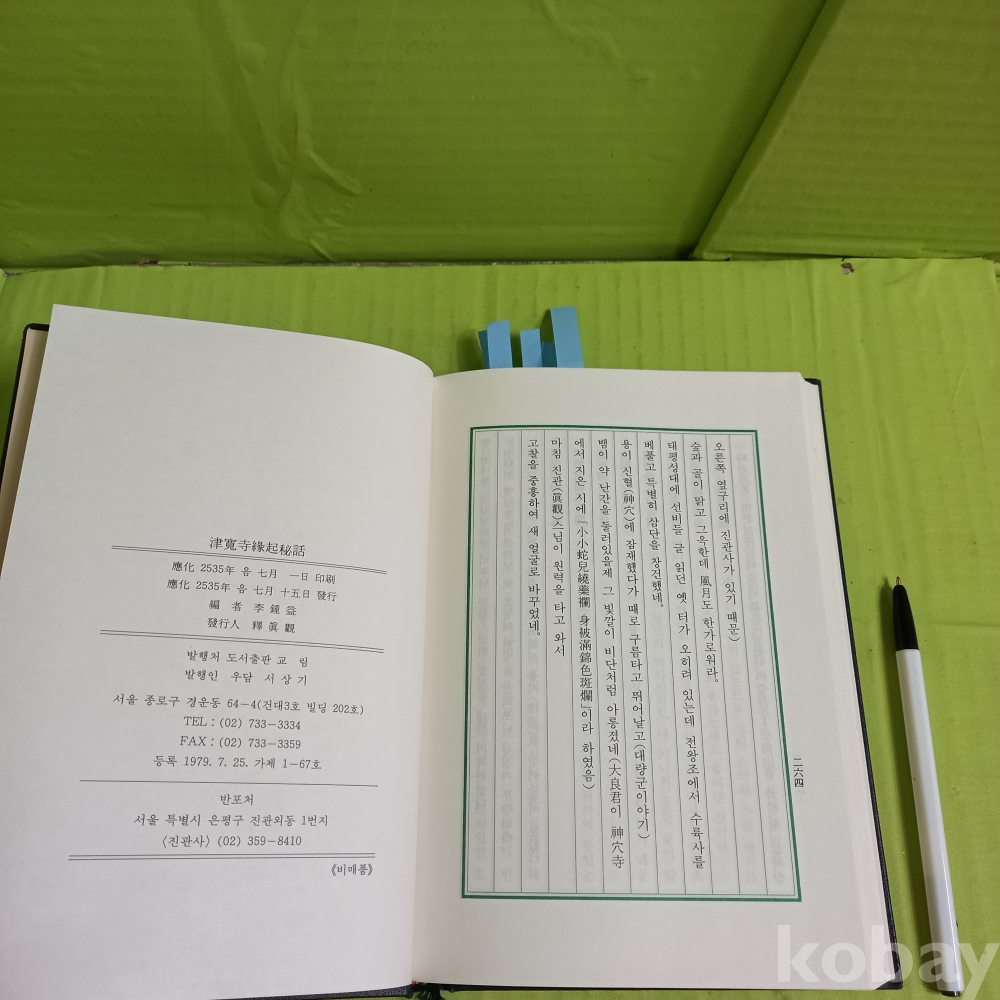 津寬寺緣起秘話
應化 2535年 음 七月 一日 印刷
應化 2535年 음 七月 十五日 發行
編 者 李鍾益
發行人 釋眞觀
발행처 도서출판 교 림
발행인 우담 서상기
서울 종로구 경운동 64-4(건대3호 빌딩 202호)
TEL : (02) 733-3334
FAX : (02) 733-3359
등록 1979. 7. 25. 가제 1-67호
반포처
서울 특별시 은평구 진관외동 1번지
〈진관사〉 (02) 359-8410
《비매품》
오른쪽 옆구리에 진관사가 있기 때문)
숲과 골이 맑고 그윽한데 風月도 한가로워라。
태평성대에 선비들 글 읽던 옛 터가 오히려 있는데 전왕조에서 수륙사를
베풀고 특별히 삼단을 창건했네。
용이 신혈(神穴)에 잠재했다가 때로 구름타고 뛰어날고(대량군이야기)
뱀이 약 난간을 둘러있을제 그 빛깔이 비단처럼 아롱졌네(大良君이 神穴寺
에서 지은 시에 「小小蛇兒繞藥欄 身被滿錦色斑爛」이라 하였음)
마침 진관(眞觀)스님이 원력을 타고 와서
고찰을 중흥하여 새 얼굴로 바꾸었네。
二六四
kobay